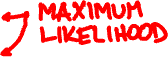 MAXIMUM
LIKELIHOOD